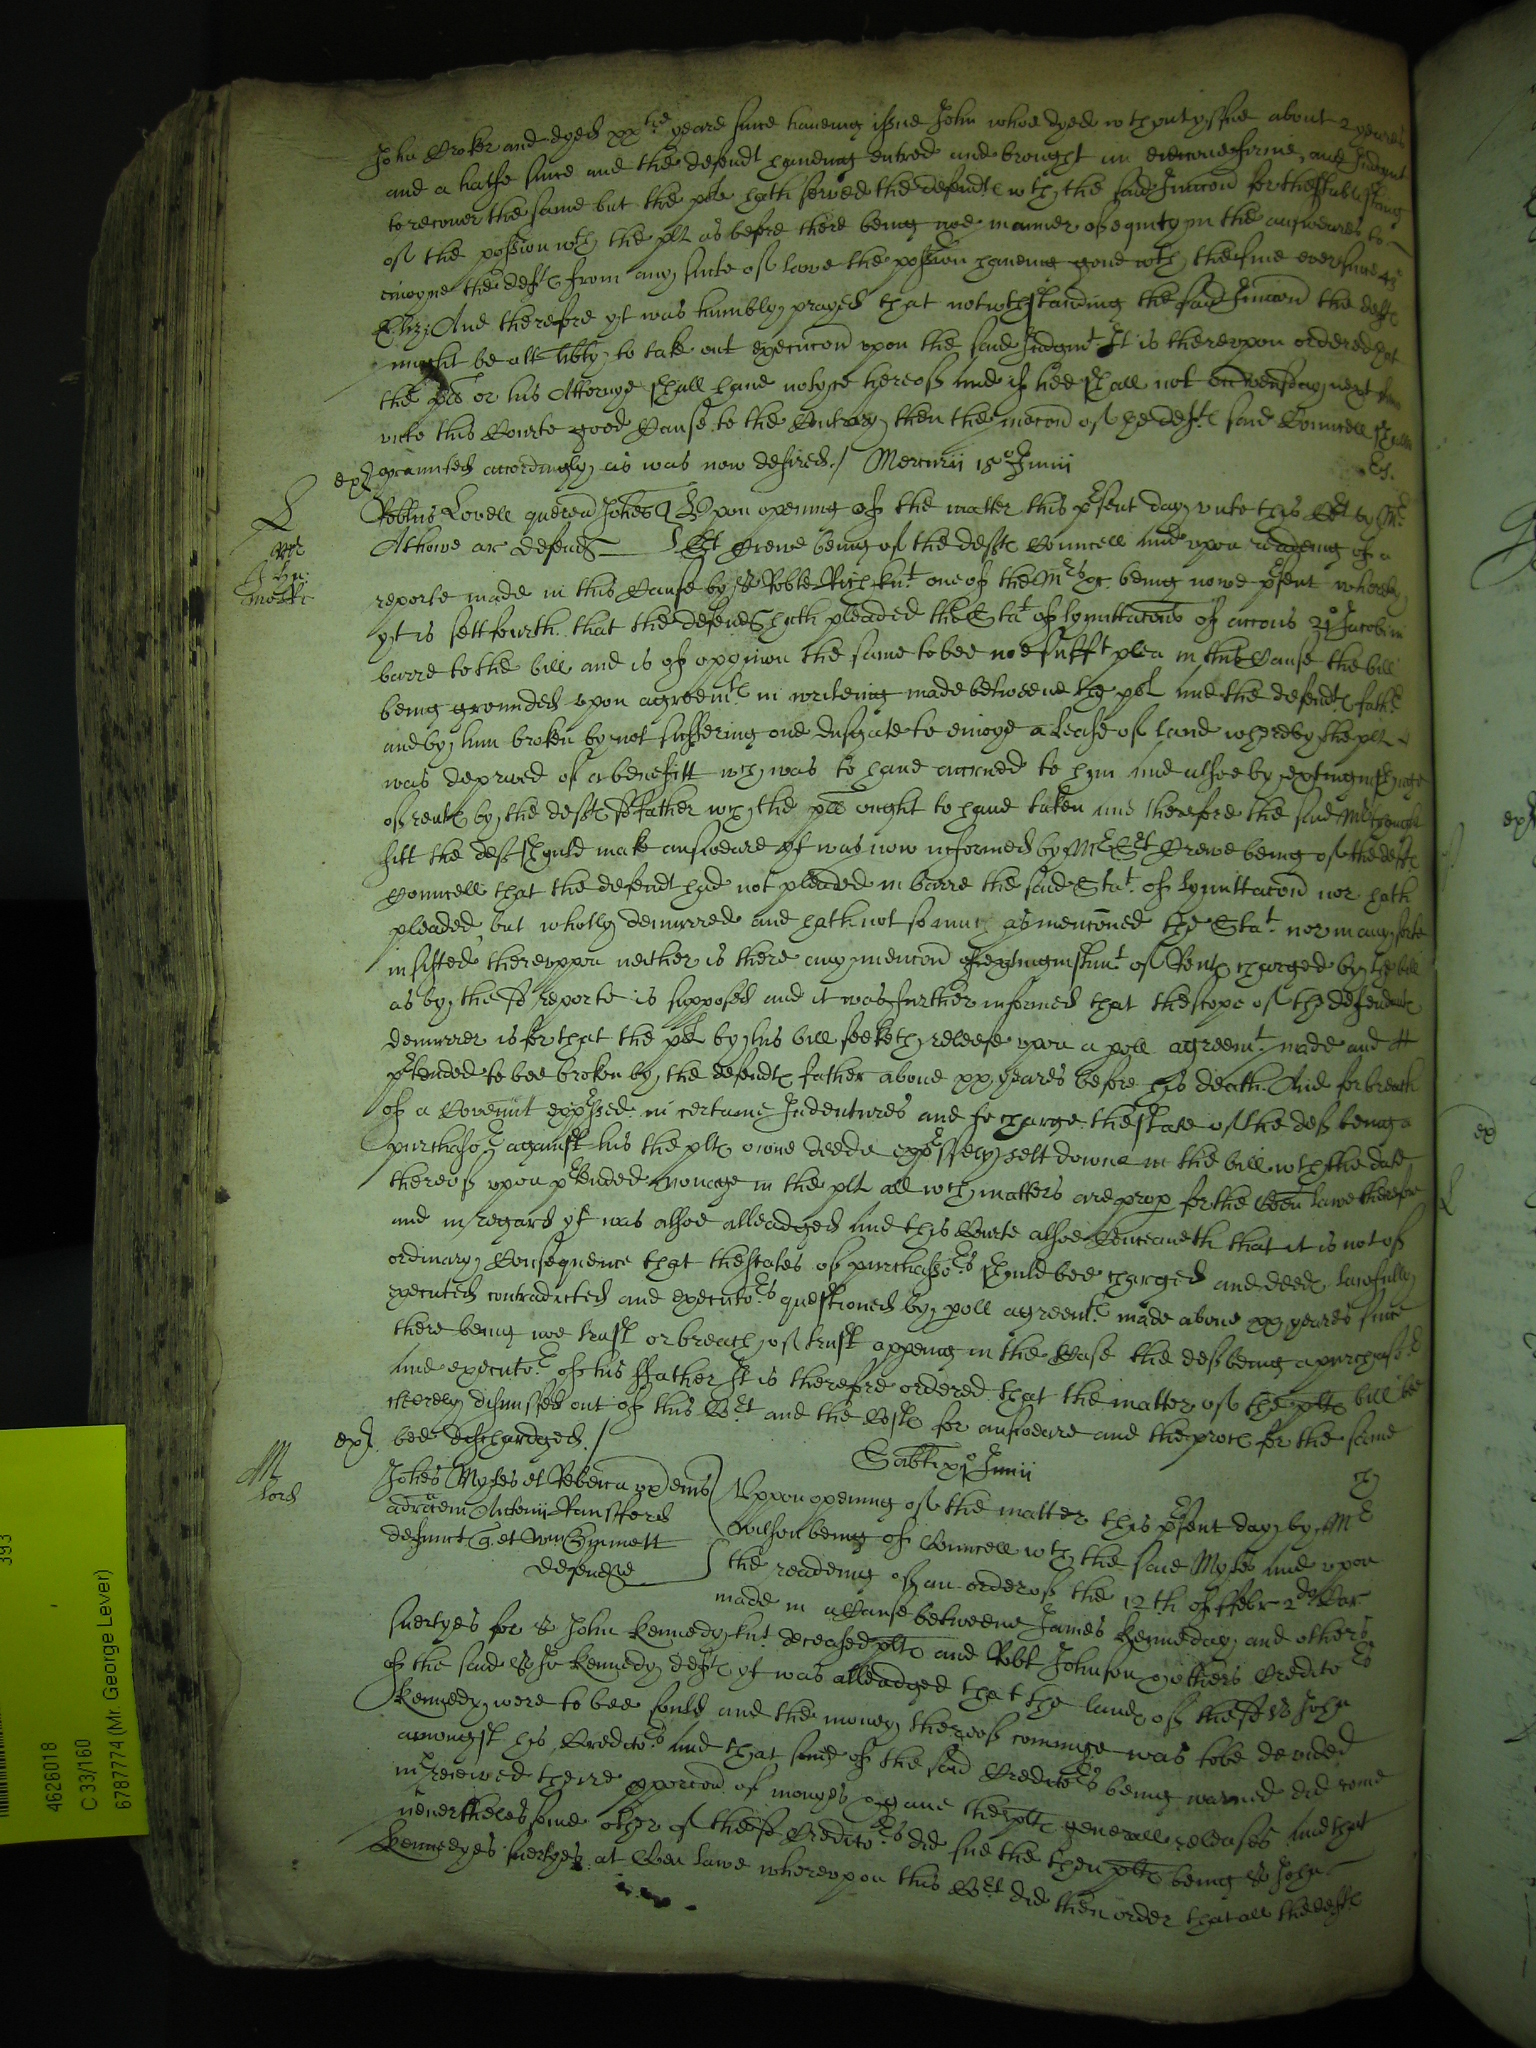 John Croker and dyed xxtie yeares since haueing issue John whoe dyed wthout yssue about 2 yeares
and a halfe since and the defendt haueing entred and brought an eiectione firme, and Judgmt
to recouer the same but the plt hath serued the defendte wth the said Iniuccon for the stablishing
of the possion wth the plt as before there being noe manner of equity in the answeares to
enioyne the defte from any suite of lawe the possion haueing gone wth the fine euer since 43
Eliz: And therefore yt was humbly prayed that notwthstanding the said Iniuccon the defte
might be att libty to take out execucon vpon the said Judgmt It is therevpon ordered that
the plt or his Attorney shall haue notyce hereof and if hee shall not on wensday next shew
vnto this Courte good Cause to the Contrary then the mocon of the defte said Councell shalbe
graunted accordingly as was now desired./ Mercurii 15o Junii
exr
L
Robtus Lovell quer Johes Vpon opening of the matter this psent day vnto this Cort by Mr
Athowe ar defend Srt Crewe being of the defte Councell and vpon reading of a
reporte made in this Cause by Sr Robte Rich knt one of the Mrs &c being nowe psent whereby
yt is sett fourth that the defend hath pleaded the Stat of lymittacons of accons 21o Jacobi in
barre to the bill and is of oppinion the same to bee noe sufft plea in this Cause the bill
being grounded vpon agreemte in writeing made betweene the plt and the defendte father
and by him broken by not suffering one to enioye a lease of land whereby the plt
was depriued of a benefitt wch was to haue accrued to him and alsoe by extinguishinge
of rente by the defte father wch the plt ought to haue taken and therefore the said Mr thought
fitt the deft should make answeare yt was now informed by Mr Srt Crewe being of the defte
Councell that the defendt had not pleaded in barre the said Stat of lymittacon nor hath
pleaded but wholly demurred and hath not so much as mencõned the Stat nor in any sorte
insisted therevppon neither is there any mencon of extinguishmt of Rente charged by the bill
as by the sd reporte is supposed and it was further informed that the scope of the defendte
demurrer is for that the plt by his bill seeketh releefe vpon a poll agreemt made and
ptended to bee broken by the defendte father aboue xx yeares before his death And for breach
of a Couennt exppssed in certaine Indentures and to charge the state of the deft being a
purchasor against his the plte owne deede expressely sett downe in the bill wth the date
thereof vpon ptended nonage in the plt all wch matters are prop for the Coen lawe therefore
and in regard yt was alsoe alleadged and this Courte alsoe Conceaueth that it is not of
ordinary Consequence that the states of purchasors should bee charged and deede lawfully
executed contradicted and executors questioned by poll agreemte made aboue xx yeares since
there being noe trust or breach of trust appeing in the Case the deft being a purchasor
and executor of his ffather It is therefore ordered that the matter of the plte bill bee
cleerely dismissed out of this Cort and the Coste for answeare and the proces for the same
exr bee discharged./ Sabbti Junii
M
Lord
Johes Myles et Rebecca vx eius Vppon opening of the matter this psent day by Mr
adratrix Antonii Ransford Wilson being of Councell wth the said Myles and vpon
defuncti quer et Wm Emmett the readeing of an order of the 12th of ffebr 2do Car
defend made in a Cause betweene James Kenneday and others
suertyes for Sr John Kennedy knt deceased plte and Robt Johnson & others Creditors
of the said Sr Jo Kennedy defte yt was alleadged that the lande of the sd Sr John
Kennedy were to bee sould and the money thereof comminge was to be deuided
amongst his Creditors and that some of the said Creditors being warned did come
in receiued theire pporcon of monyes & gaue the plte generall releases and that
neuertheles some other of the sd Creditors did sue the then plte being Sr John
Kennedyes suertyes at Coen lawe wherevpon this Cort did then order that all the defte
4626018
C 33/160
6787774 (Mr. George Lever)
393